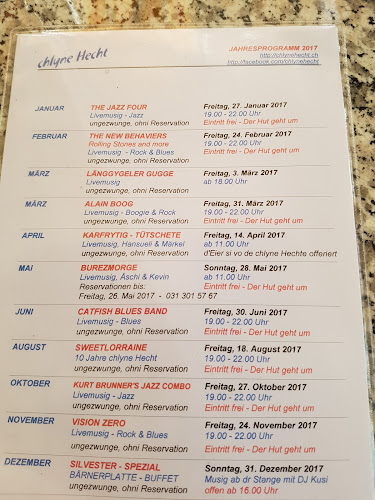 chlyne Hecht
JAHRESPROGRAMM 2017
http://chlynehecht.ch
http://facebook.com/chlynehecht
JANUAR THE JAZZ FOUR Freitag, 27. Januar 2017
Livemusig - Jazz 19.00 - 22.00 Uhr
ungezwunge, ohni Reservation Eintritt frei - Der Hut geht um
FEBRUAR THE NEW BEHAVIERS Freitag, 24. Februar 2017
Rolling Stones and more 19.00 - 22.00 Uhr
Livemusig - Rock & Blues Eintritt frei - Der Hut geht um
ungezwunge, ohni Reservation
MÄRZ LÄNGGYGELER GUGGE Freitag, 3. März 2017
Livemusig ab 18.00 Uhr
ungezwunge, ohni Reservation
MÄRZ ALAIN BOOG Freitag, 31. März 2017
Livemusig - Boogie & Rock 19.00 - 22.00 Uhr
ungezwunge, ohni Reservation Eintritt frei - Der Hut geht um
APRIL KARFRYTIG - TÜTSCHETE Freitag, 14. April 2017
Livemusig, Hansueli & Märkel ab 11.00 Uhr
ungezwunge, ohni Reservation d'Eier si vo de chlyne Hechte offeriert
MAI BUREZMORGE Sonntag, 28. Mai 2017
Livemusig, Äschi & Kevin ab 11.00 Uhr
Reservationen bis: Eintritt frei - Der Hut geht um
Freitag, 26. Mai 2017 - 031 301 57 67
JUNI CATFISH BLUES BAND Freitag, 30. Juni 2017
Livemusig - Blues 19.00 - 22.00 Uhr
ungezwunge, ohni Reservation Eintritt frei - Der Hut geht um
AUGUST SWEETLORRAINE Freitag, 18. August 2017
10 Jahre chlyne Hecht 19.00 - 22.00 Uhr
ungezwunge, ohni Reservation Eintritt frei - Der Hut geht um
OKTOBER KURT BRUNNER'S JAZZ COMBO Freitag, 27. Oktober 2017
Livemusig - Jazz 19.00 - 22.00 Uhr
ungezwunge, ohni Reservation Eintritt frei - Der Hut geht um
NOVEMBER VISION ZERO Freitag, 24. November 2017
Livemusig - Rock & Blues 19.00 - 22.00 Uhr
ungezwunge, ohni Reservation Eintritt frei - Der Hut geht um
DEZEMBER SILVESTER - SPEZIAL Sonntag, 31. Dezember 2017
BÄRNERPLATTE - BUFFET Musig ab dr Stange mit DJ Kusi
ungezwunge, ohni Reservation offen ab 16.00 Uhr